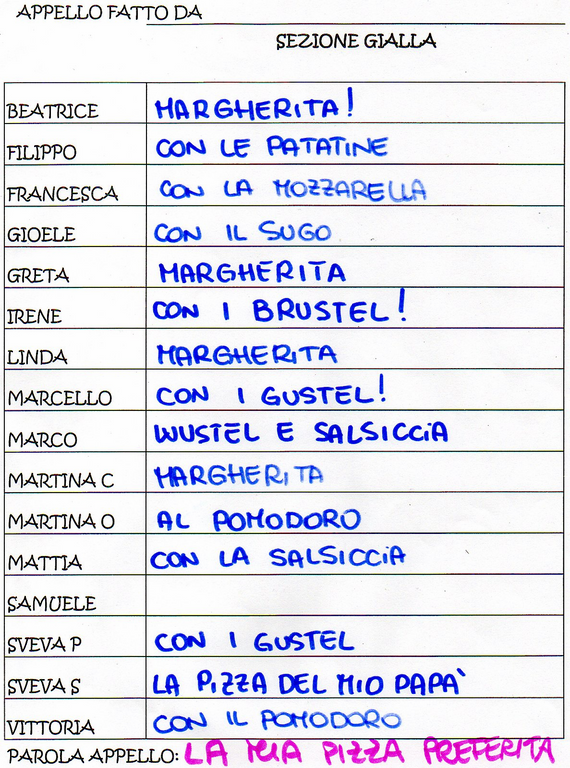 APPELLO FATTO DA
SEZIONE GIALLA
BEATRICE MARGHERITA!
FILIPPO CON LE PATATINE
FRANCESCA CON LA MOZZARELLA
GIOELE CON IL SUGO
GRETA MARGHERITA
IRENE CON I BRUSTEL!
LINDA MARGHERITA
MARCELLO CON I GUSTEL!
MARCO WUSTEL E SALSICCIA
MARTINA C MARGHERITA
MARTINA O AL POMODORO
MATTIA CON LA SALSICCIA
SAMUELE
SVEVA P CON I GUSTEL
SVEVA S LA PIZZA DEL MIO PAPA'
VITTORIA CON IL POMODORO
PAROLA APPELLO: LA MIA PIZZA PREFERITA